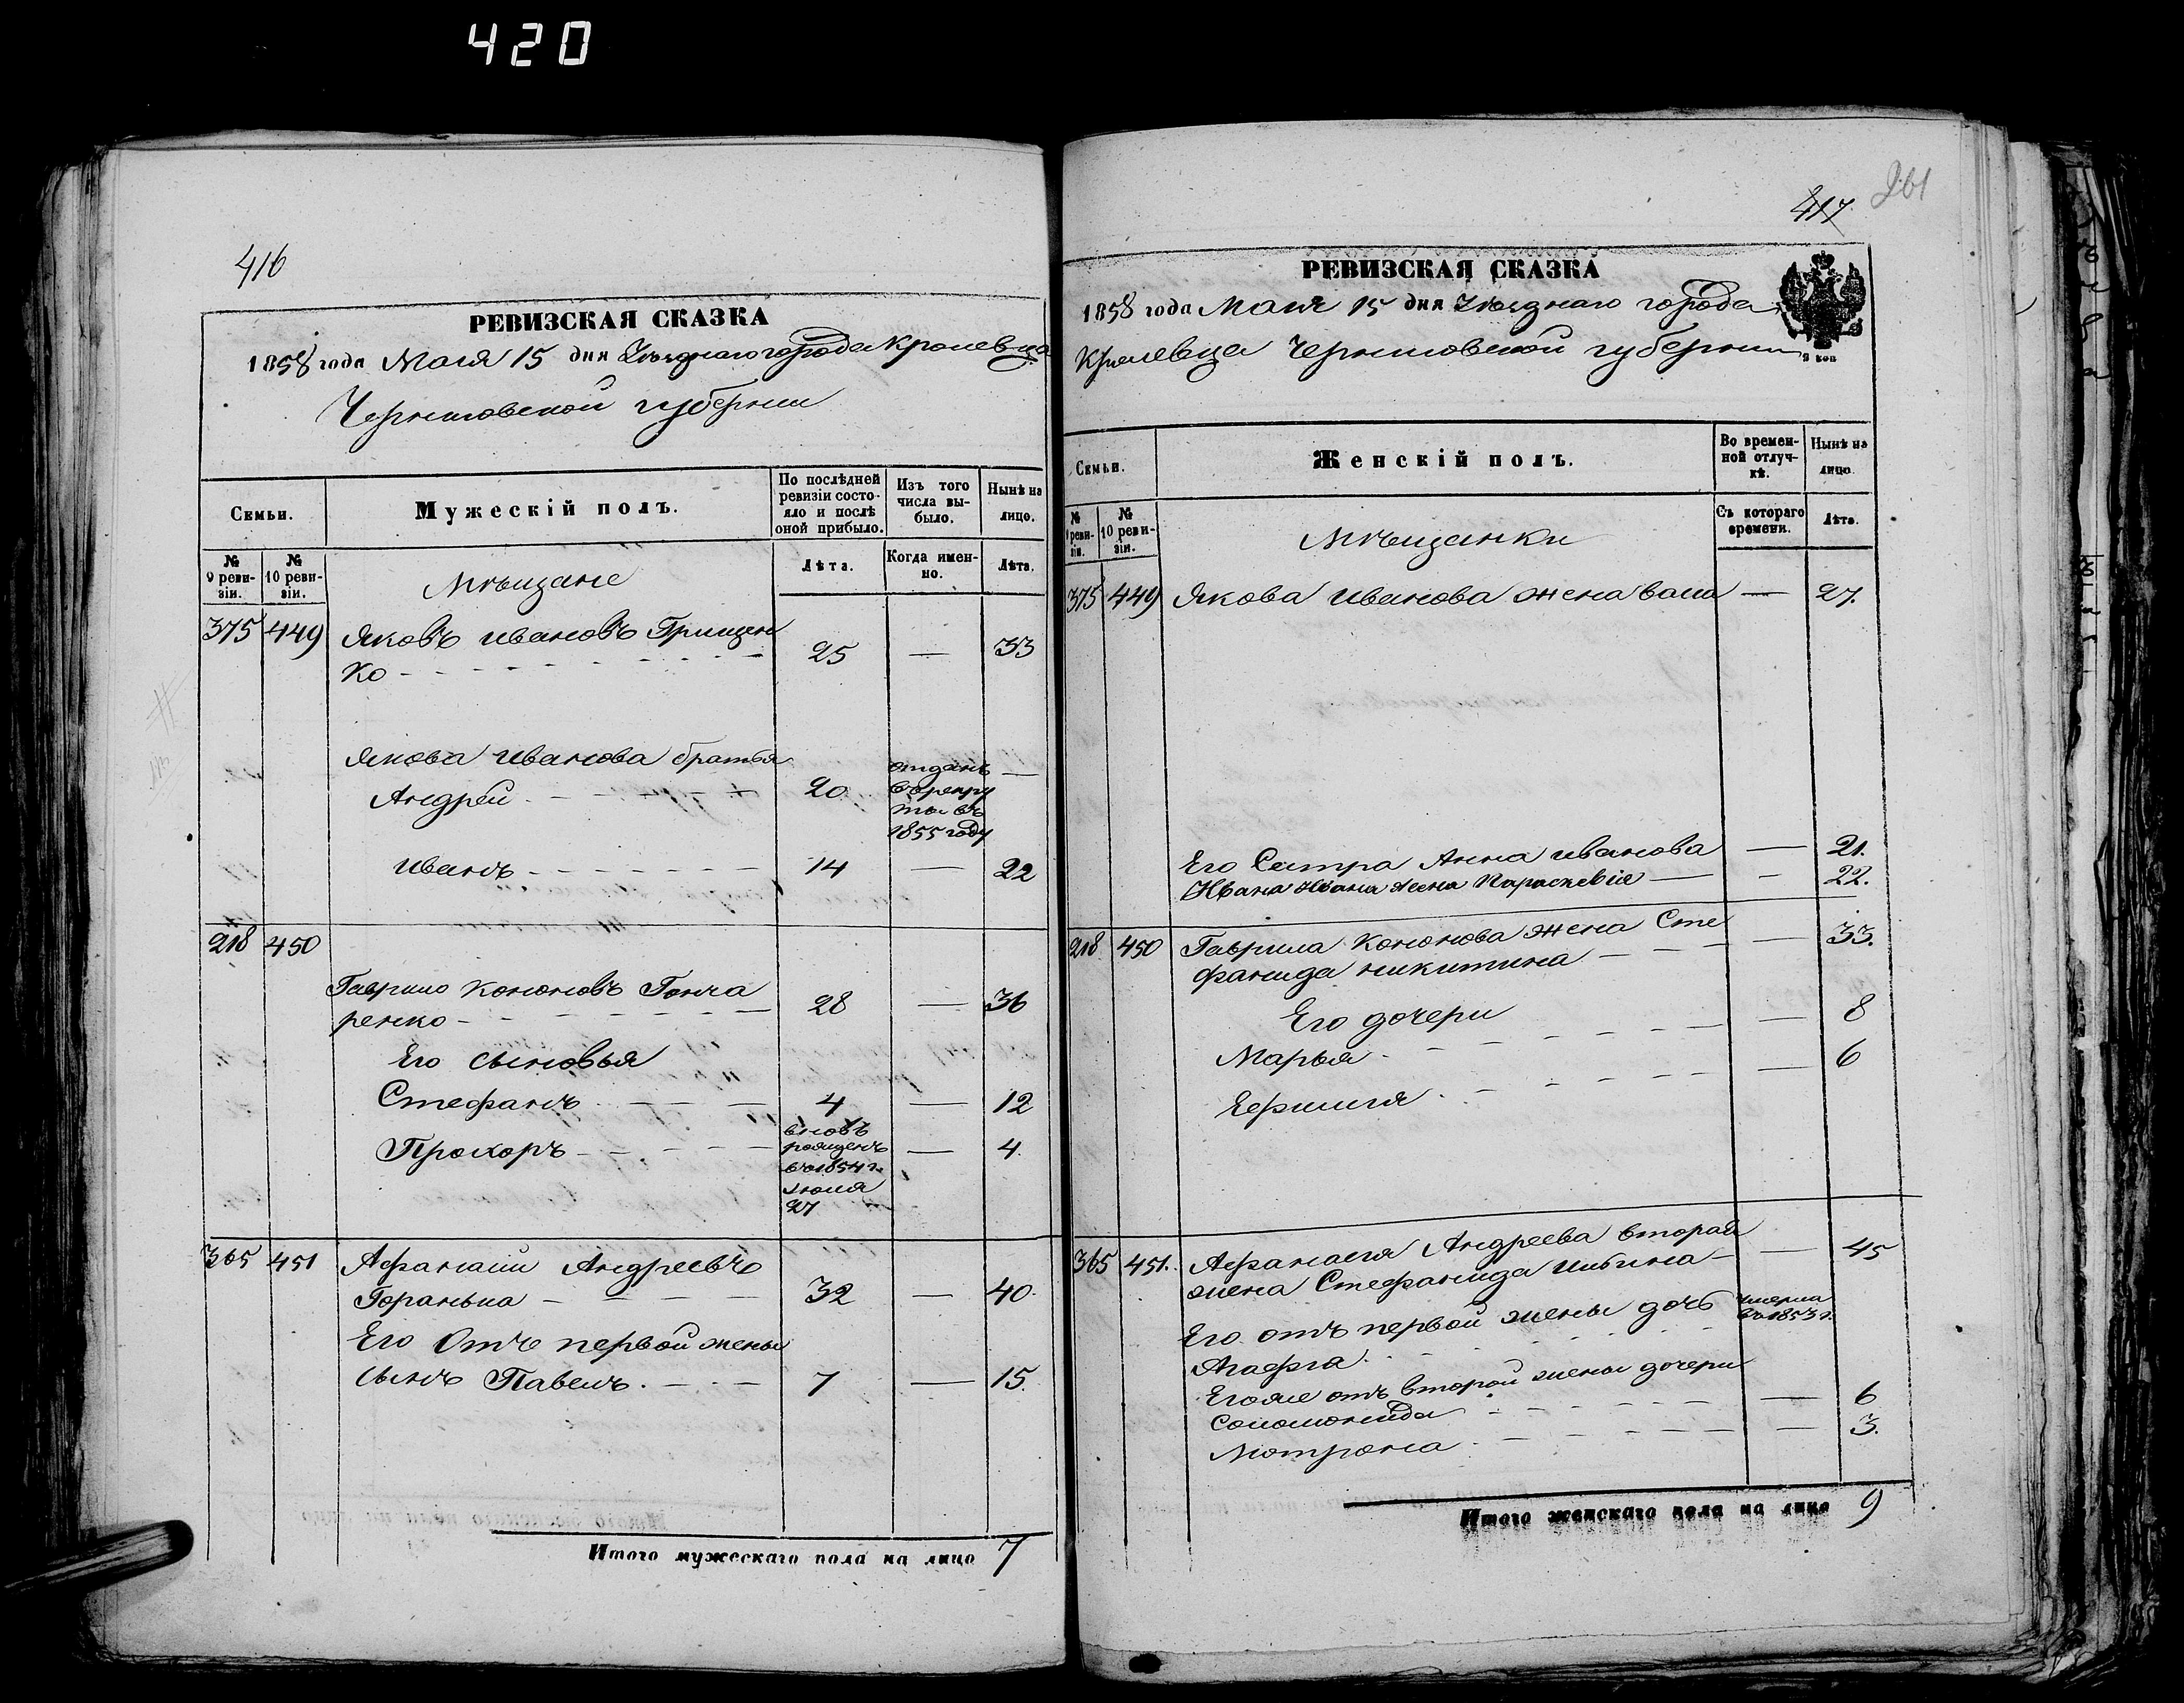 420
416
РЕВИЗСКАЯ СКАЗКА
1858 года Маія 15 дня Уѣзднаго города Кролевца
Черниговской губерніи
Семьи.
Мужескій полъ.
По послѣдней ревизіи состояло и послѣ оной прибыло.
Изъ того числа выбыло.
Нынѣ на лицо.
№ 9 ревизіи.
№ 10 ревизіи.
Мѣщане
Лѣта.
Когда именно.
Лѣта.
375 449 Яковъ Ивановъ Грищен
ко 25 — 33
Якова Иванова братья
Андрей 20 отданъ в рекруты въ 1855 году —
Иванъ 14 — 22
218 450
Гаврило Кононовъ Гонча
ренко 28 — 36
Его сыновья
Стефанъ 4 — 12
Прохоръ вновь рожденъ в 1854 г. Июля 27 — 4
365 451 Афанасій Андреевъ
Горанька 32 — 40
Его Отъ первой жены
сынъ Павелъ 7 — 15.
Итого мужескаго пола на лицо 7
417
261
РЕВИЗСКАЯ СКАЗКА
1858 года Маія 15 дня Уѣзднаго города
Кролевца Черниговской губерніи
Семьи.
Женскій полъ.
Во временной отлучкѣ.
Нынѣ на лицо.
№ 9 ревизіи.
№ 10 ревизіи.
Мѣщанки
Съ котораго времени.
Лѣта.
375 449 Якова Иванова жена — 27.
Его Сестра Анна Иванова — 21.
Ивана Ивана жена Параскевія — 22.
218 450 Гаврила Кононова жена Сте
фанида Никитина — 33.
Его дочери
Марья — 8
— 6
365 451. Афанасія Андреева вторая
жена Стефанида Ильина — 45
Его отъ первой жены дочь умерла в 1853 г.
Агафія
Егоже отъ второй жены дочери
Соломонида — 6
Мотрона — 3.
Итого женскаго пола на лицо 9